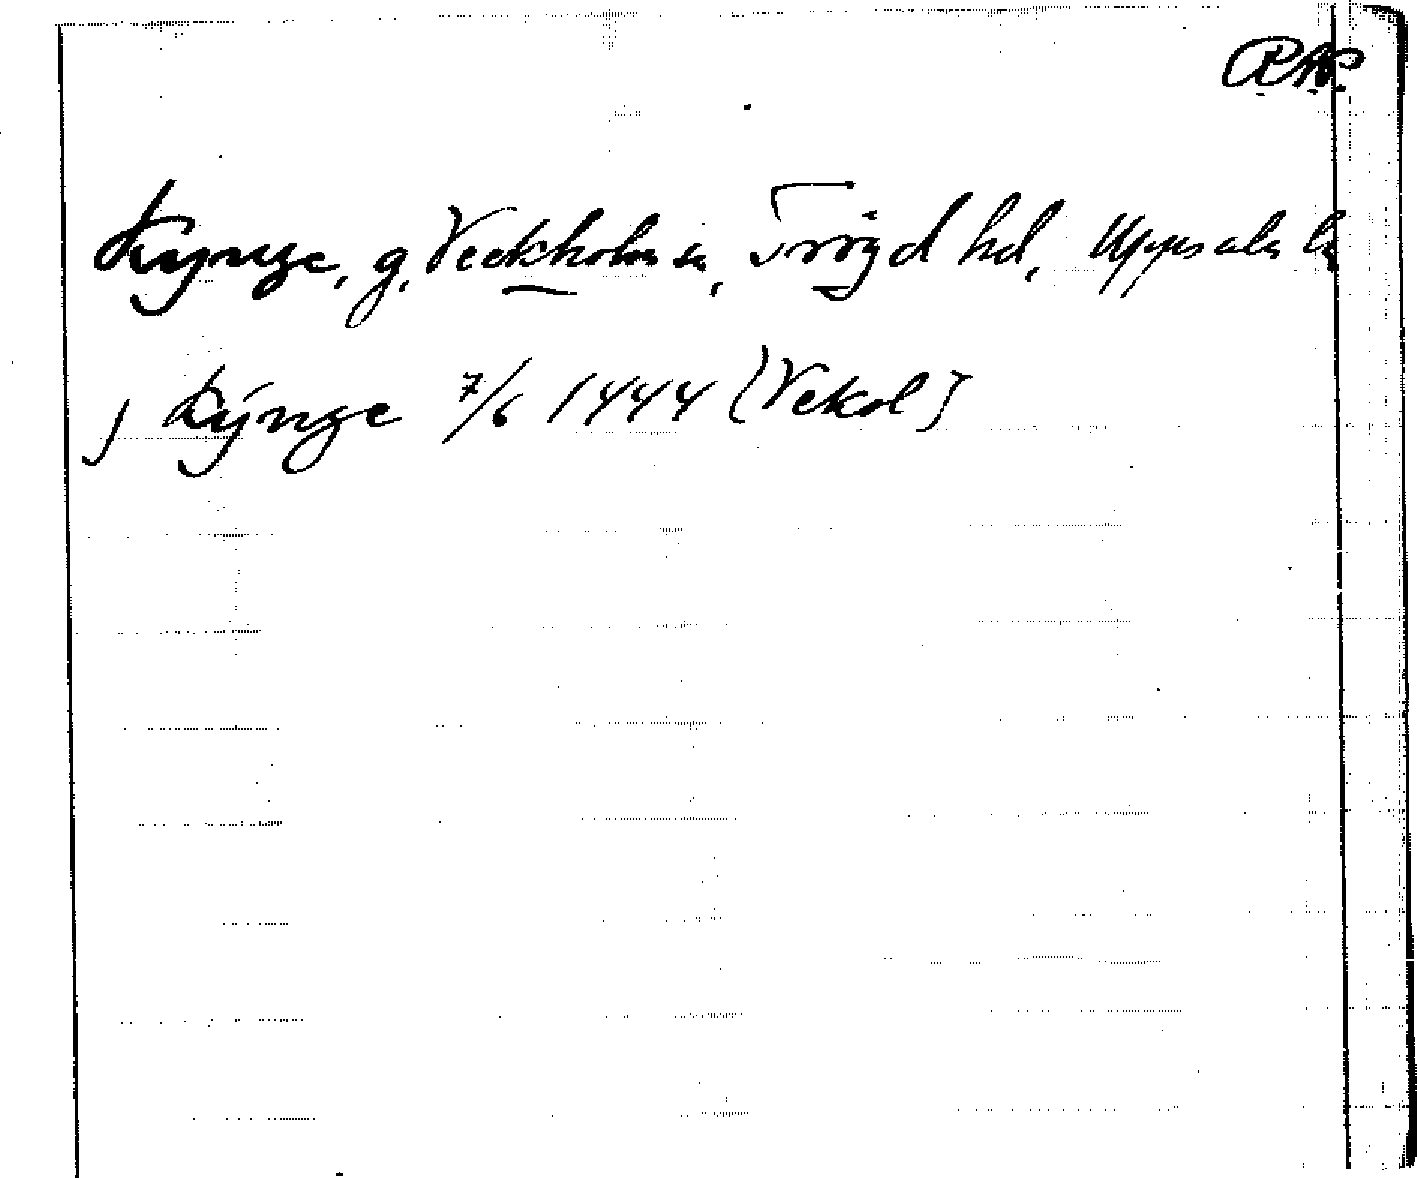 RAP.
Kynge, g, Veckholm sn, Trögd hd, Uppsala län
J Kynge 7/6 1444 (Vekol)